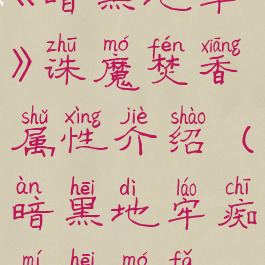 《暗黑地牢
zhū mó fén xiāng
》诛魔焚香
shǔ xìng jiè shào
属性介绍（
àn hēi dì láo chī
暗黑地牢痴
mí hēi mó fǎ